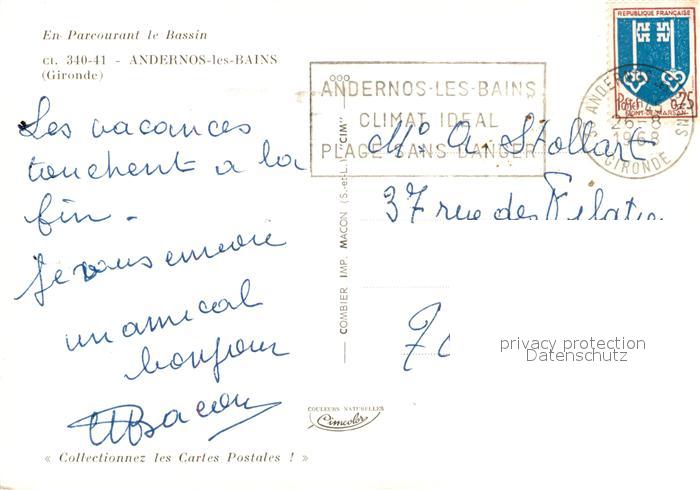 En Parcourant le Bassin
CI. 340-41 - ANDERNOS-les-BAINS
(Gironde)
Les vacances
touchent a la
fin.
Je vous envoie
un amical
bonjour
Bacon
« Collectionnez les Cartes Postales ! »
COMBIER IMP. MACON (S.-et-L.) "CIM"
COULEURS NATURELLES
Cimcolor
ANDERNOS-LES-BAINS
CLIMAT IDEAL
PLAGE SANS DANGER
REPUBLIQUE FRANÇAISE
0,25
MONT-DE-MARSAN
1968
GIRONDE
A. Stollart
37 rue des
privacy protection
Datenschutz